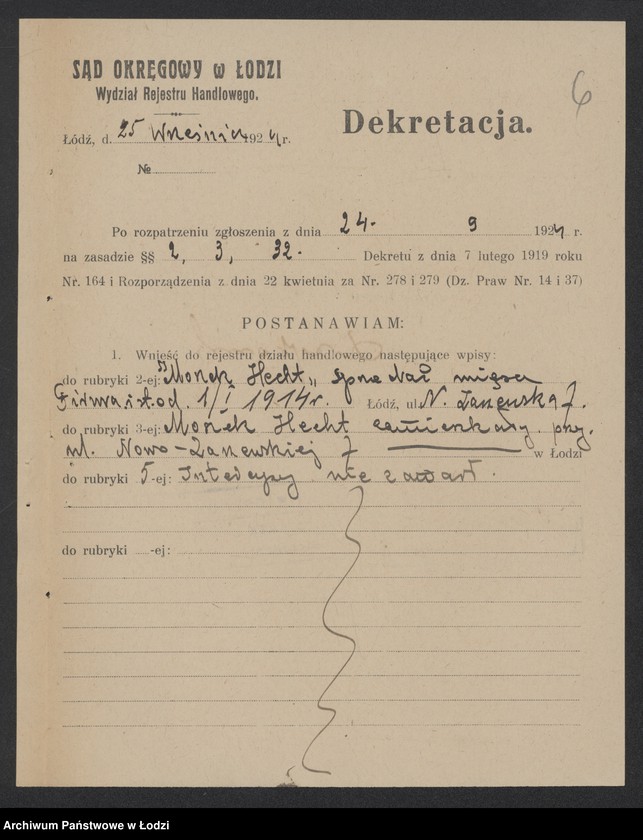 SĄD OKRĘGOWY w ŁODZI
Wydział Rejestru Handlowego.
6
Dekretacja.
Łódź, d. 25 Września 1924 r.
№
Po rozpatrzeniu zgłoszenia z dnia 24. 9 1924 r.
na zasadzie §§ 2, 3, 32. Dekretu z dnia 7 lutego 1919 roku
Nr. 164 i Rozporządzenia z dnia 22 kwietnia za Nr. 278 i 279 (Dz. Praw Nr. 14 i 37)
POSTANAWIAM:
1. Wnieść do rejestru działu handlowego następujące wpisy:
do rubryki 2-ej: "Moнek Hecht„ sprzedaż mięsa
Firma ist. od 1/I 1914 r. Łódź, ul. N. Zarzewska 7.
do rubryki 3-ej: Moнek Hecht zamieszkały przy
ul. Nowo-Zarzewskiej 7 w Łodzi
do rubryki 5-ej: Intercyzy nie zawarł.
do rubryki -ej:
Archiwum Państwowe w Łodzi